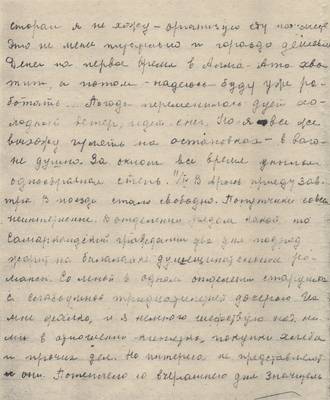 сторан я не хожу - организую еду на месте
Это не менее питательно и гораздо дешевле
Денег на первое время в Алма-Ата хва
тит, а потом - надеюсь буду уже ра-
ботать... Погода переменилась дует хо-
лодный ветер, идет снег. Но я все же
выхожу гулять на остановках - в ваго-
не душно. За окном все время унылая
однообразная степь. В Арысь приеду зав-
тра В поезде стало свободно. Попутчики совсем
неинтересные. В отделении рядом какой то
самаркандский праведник два дня подряд
жарит на балалайке душещипательные ро-
мансы. Со мной в одном отделении старушка
с тридцатилетней дочерью. Их
мне жалко, и я немного шефствую над ни
ми в отношении кипятку, покупки хлеба
и прочих дел. Но интереса не представляют
и они. Потеплело со вчерашнего дня значительно